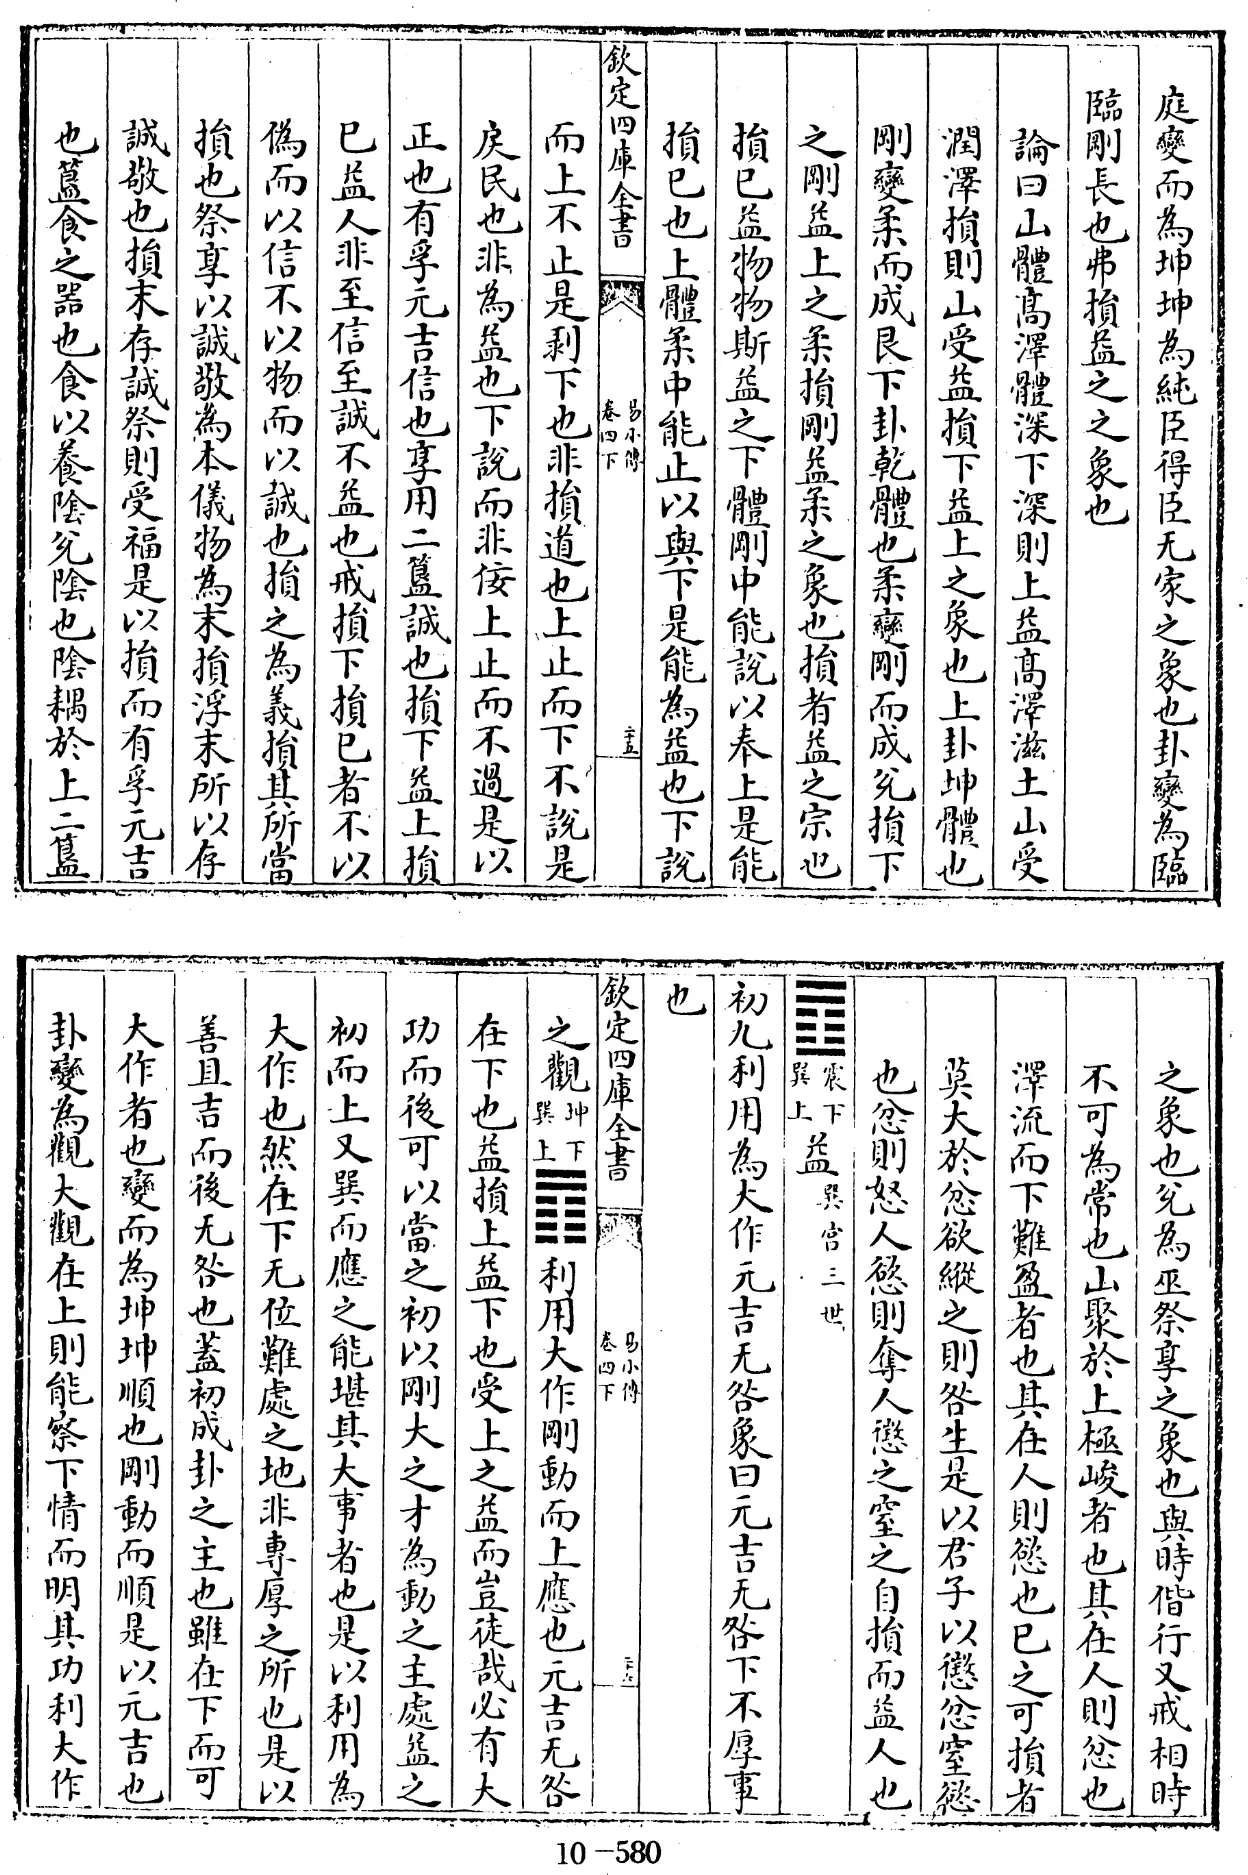 庭變而為坤坤為純臣得臣无家之象也卦變為臨
臨剛長也弗損益之之象也
論曰山體髙澤體深下深則上益髙澤滋土山受
潤澤損則山受益損下益上之象也上卦坤體也
剛變柔而成艮下卦乾體也柔變剛而成兊損下
之剛益上之柔損剛益柔之象也損者益之宗也
損已益物物斯益之下體剛中能說以奉上是能
損已也上體柔中能止以與下是能為益也下說
欽定四庫全書
易小傳
卷四下
二十五
而上不止是剥下也非損道也上止而下不說是
戾民也非為益也下說而非佞上止而不過是以
正也有孚元吉信也享用二簋誠也損下益上損
已益人非至信至誠不益也戒損下損已者不以
偽而以信不以物而以誠也損之為義損其所當
損也祭享以誠敬為本儀物為末損浮末所以存
誠敬也損末存誠祭則受福是以損而有孚元吉
也簋食之器也食以養陰兊陰也陰耦於上二簋
之象也兊為巫祭享之象也與時偕行又戒相時
不可為常也山聚於上極峻者也其在人則忿也
澤流而下難盈者也其在人則慾也已之可損者
莫大於忿欲縱之則咎生是以君子以懲忿窒慾
也忿則怒人慾則奪人懲之窒之自損而益人也
䷩震下巽上益巽宫三世
初九利用為大作元吉无咎象曰元吉无咎下不厚事
也
欽定四庫全書
易小傳
卷四下
二十六
之觀坤下巽上䷓利用大作剛動而上應也元吉无咎
在下也益損上益下也受上之益而豈徒哉必有大
功而後可以當之初以剛大之才為動之主處益之
初而上又巽而應之能堪其大事者也是以利用為
大作也然在下无位難處之地非專厚之所也是以
善且吉而後无咎也蓋初成卦之主也雖在下而可
大作者也變而為坤坤順也剛動而順是以元吉也
卦變為觀大觀在上則能察下情而明其功利大作
10-580